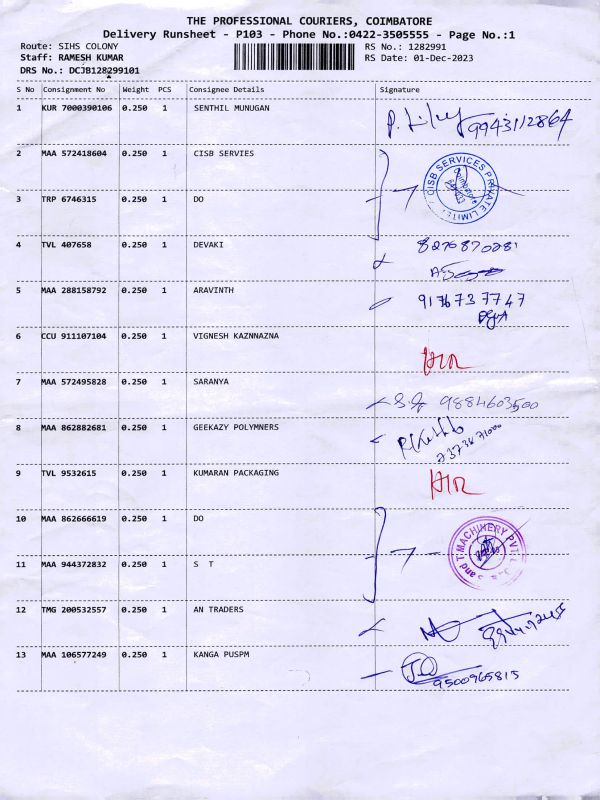 THE PROFESSIONAL COURIERS, COIMBATORE
Delivery Runsheet - P103 - Phone No.:0422-3505555 - Page No.:1
Route: SIHS COLONY RS No.: 1282991
Staff: RAMESH KUMAR RS Date: 01-Dec-2023
DRS No.: DCJB128299101
S No Consignment No Weight PCS Consignee Details Signature
1 KUR 7000390106 0.250 1 SENTHIL MUNUGAN
9943112864
2 MAA 572418604 0.250 1 CISB SERVIES
CISB SERVICES PRIVATE LIMITED
3 TRP 6746315 0.250 1 DO
4 TVL 407658 0.250 1 DEVAKI
5 MAA 288158792 0.250 1 ARAVINTH
9176737747
6 CCU 911107104 0.250 1 VIGNESH KAZNNAZNA
7 MAA 572495828 0.250 1 SARANYA
9884603500
8 MAA 862882681 0.250 1 GEEKAZY POLYMNERS
9 TVL 9532615 0.250 1 KUMARAN PACKAGING
10 MAA 862666619 0.250 1 DO
MACHINERY PVT
11 MAA 944372832 0.250 1 S T
12 TMG 200532557 0.250 1 AN TRADERS
13 MAA 106577249 0.250 1 KANGA PUSPM
9500965815